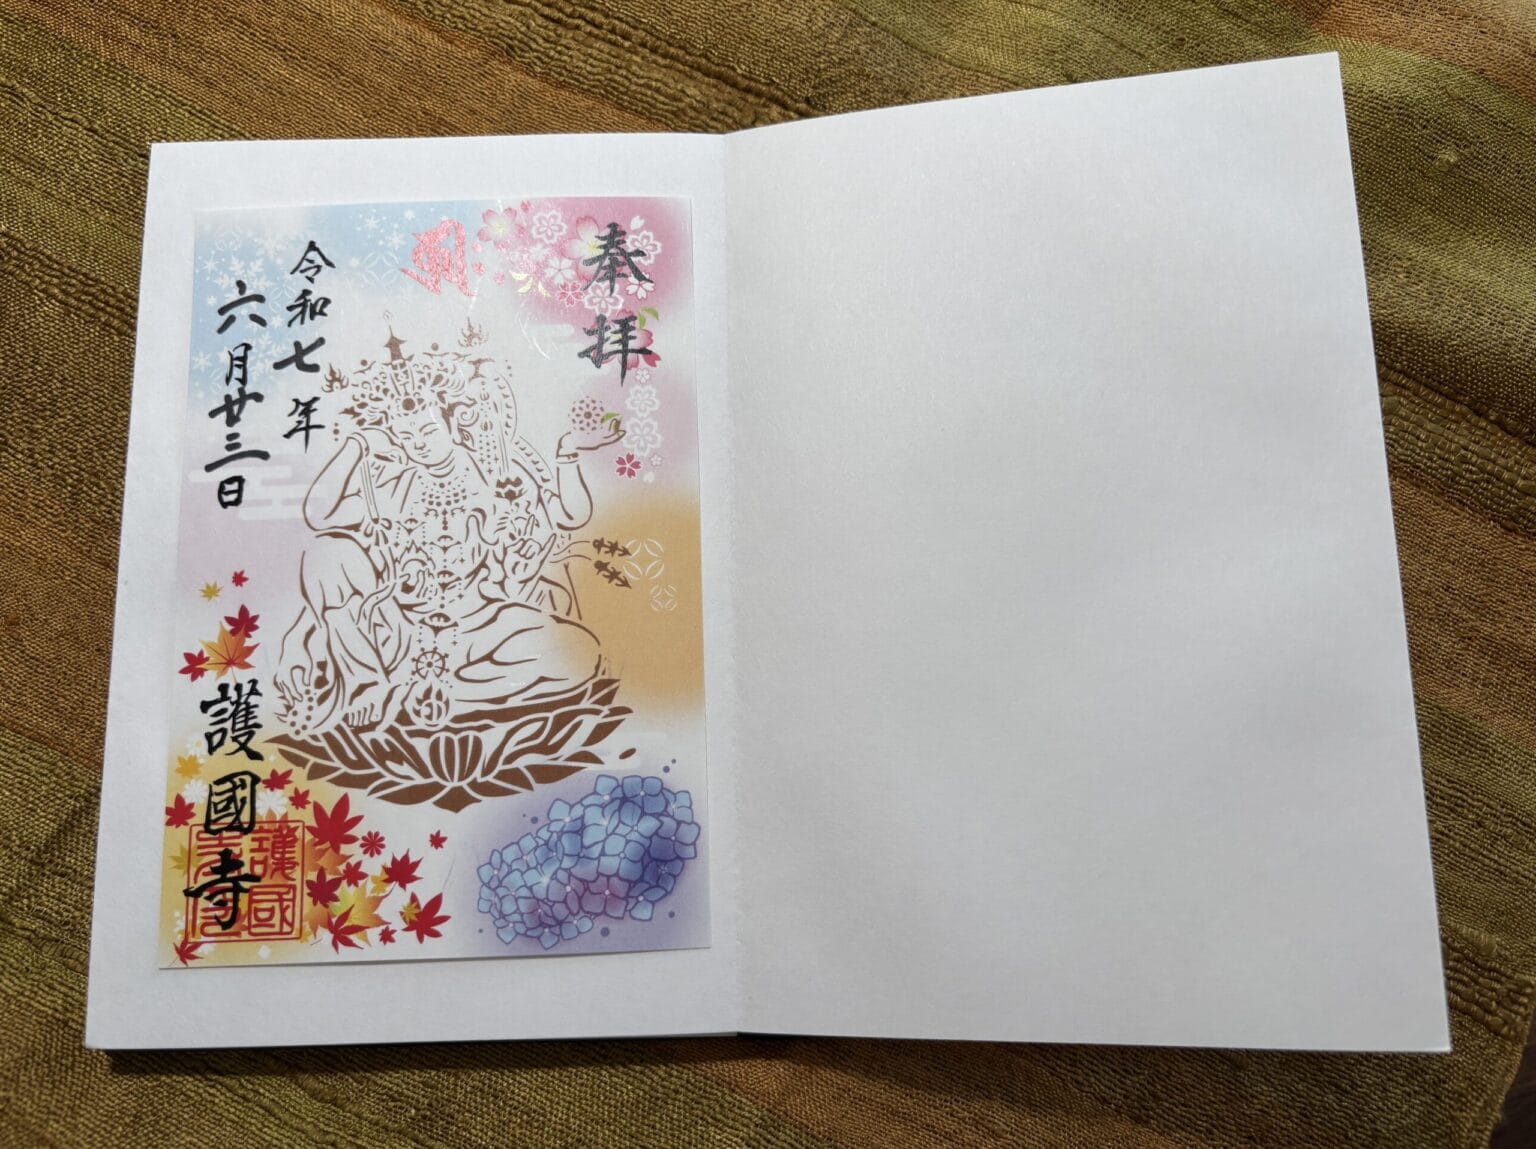 奉拝
令和七年
六月廿三日
護國寺